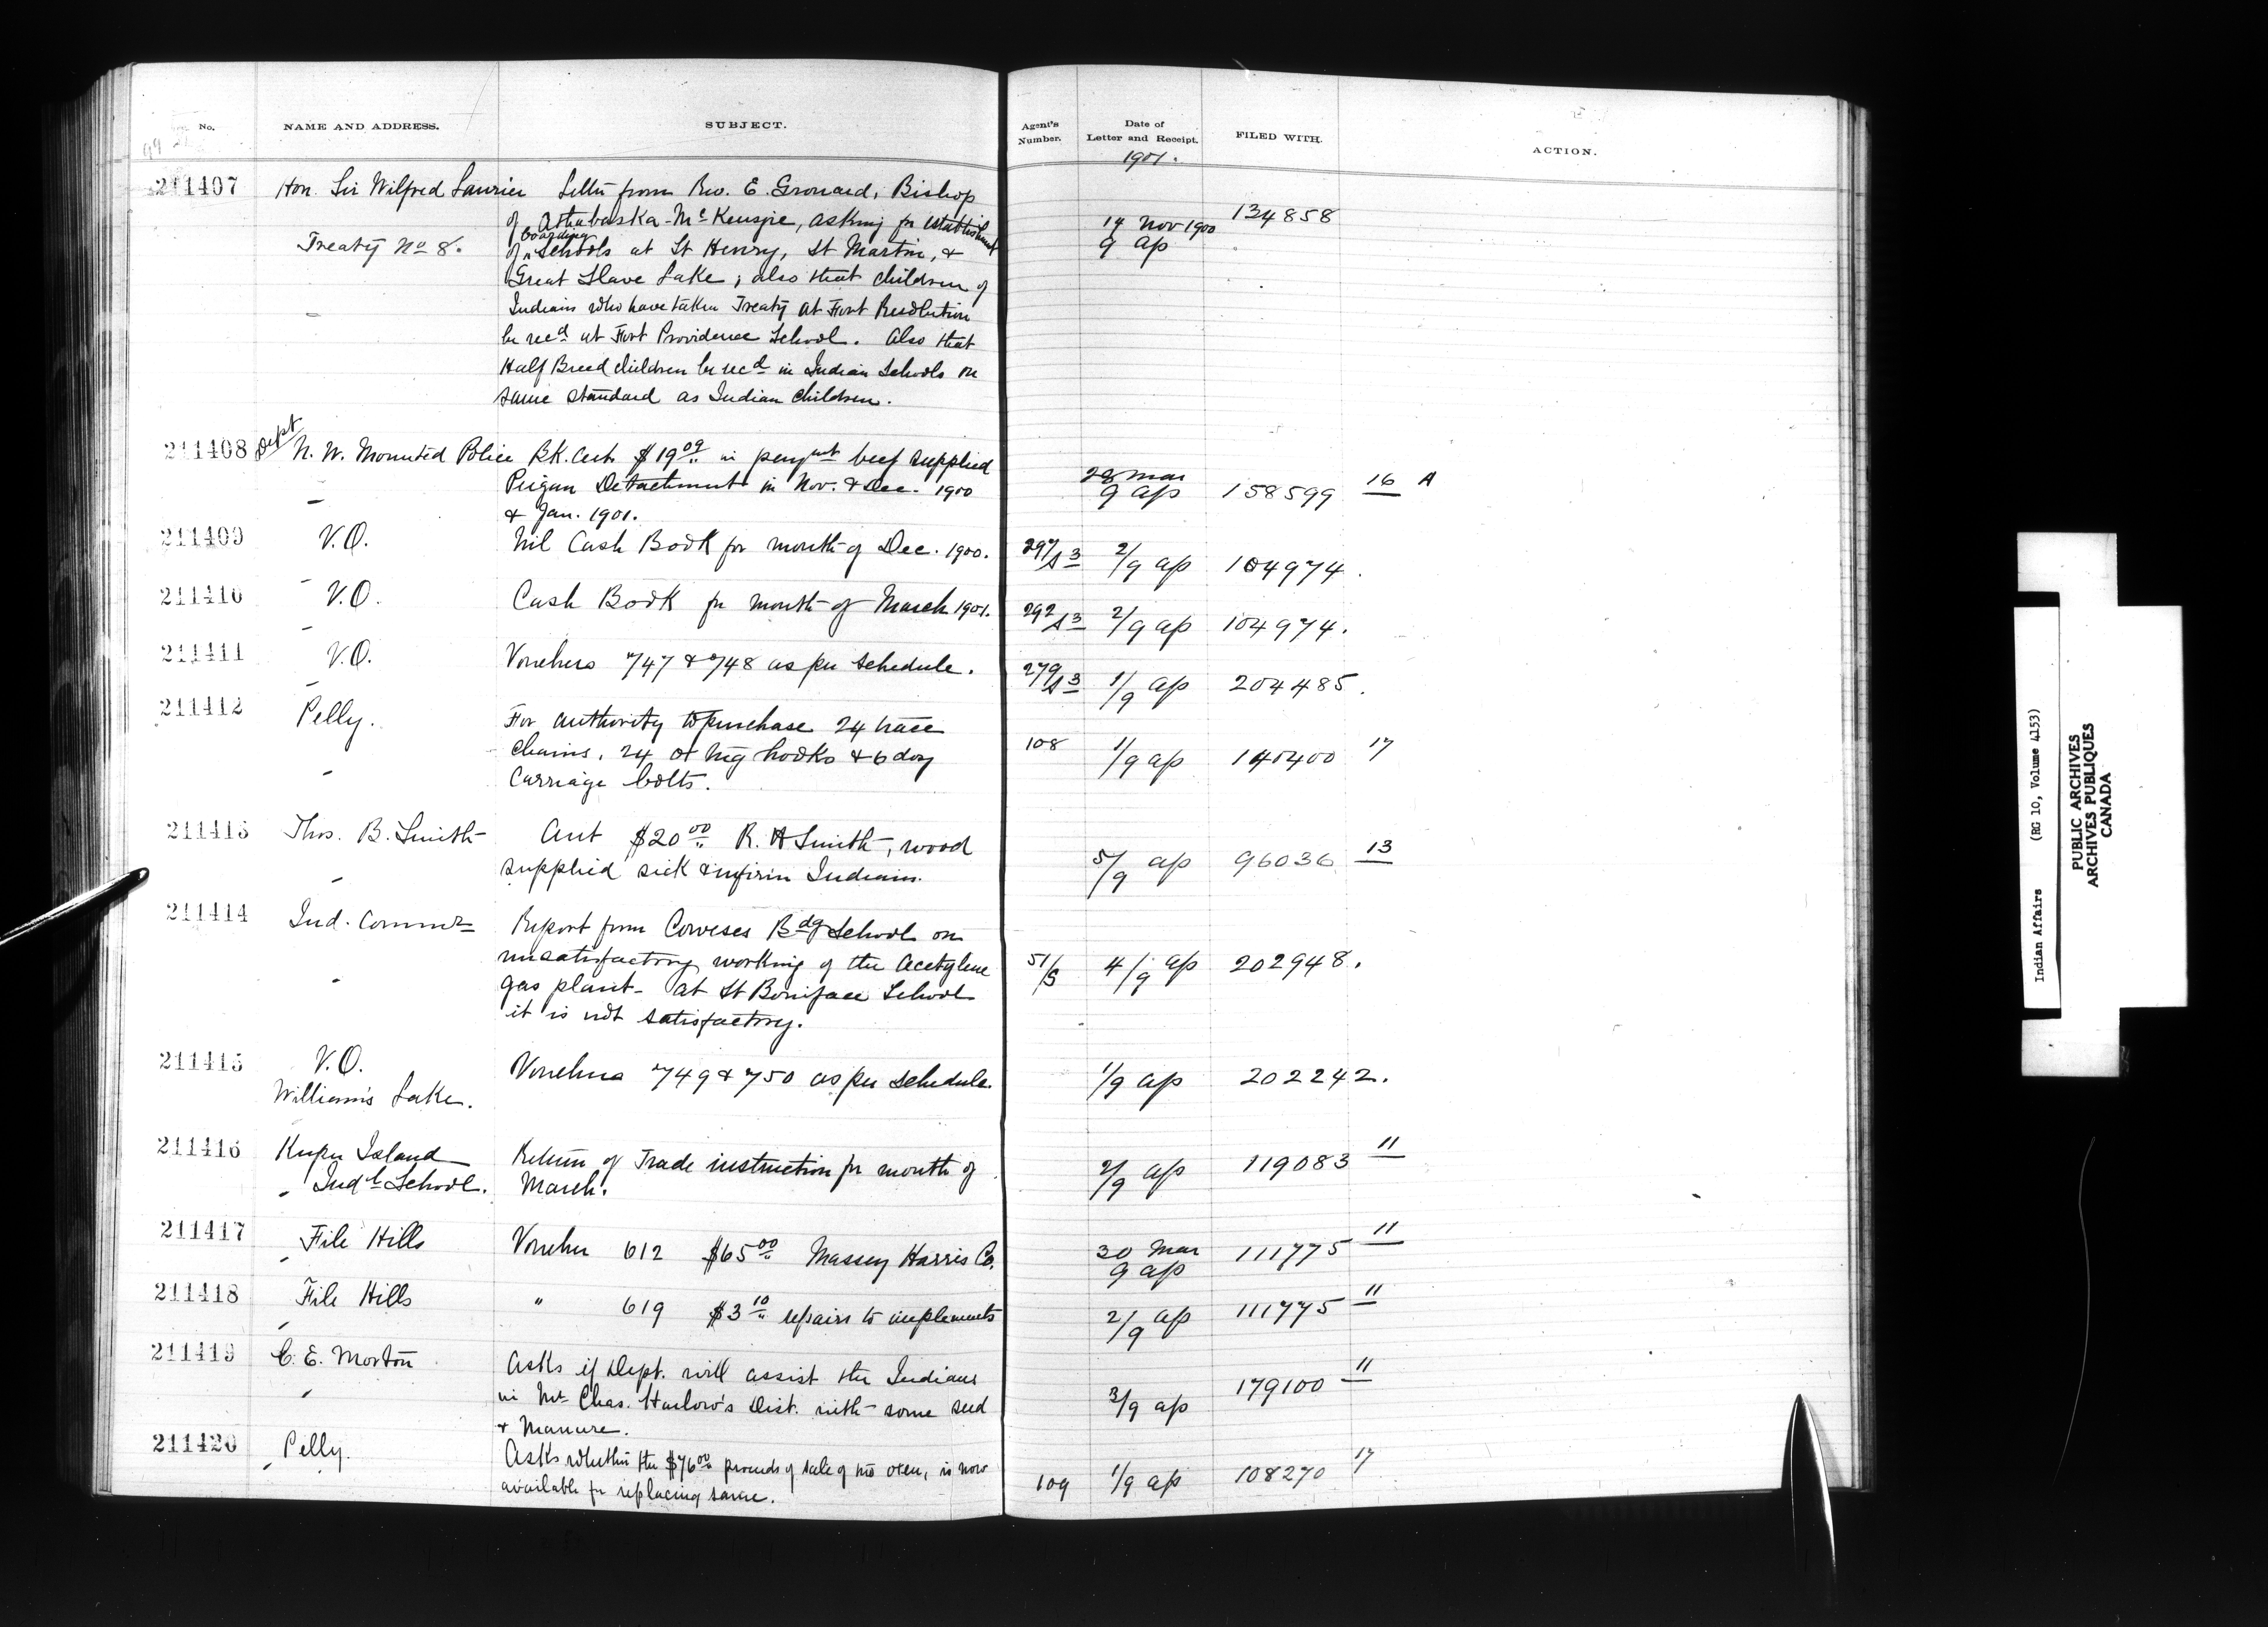 No. NAME AND ADDRESS. SUBJECT. Agent's Number. Date of Letter and Receipt. FILED WITH. ACTION.
1901.
211407 Hon. Sir Wilfred Laurier Letter from Rev. E. Grouard, Bishop
of Athabaska-McKenzie, asking for establishment 14 Nov 1900 134858
Treaty No 8. of boarding schools at St Henry, St Martin, & 9 ap
Great Slave Lake; also that children of
Indians who have taken Treaty at Fort Resolution
be recd at Fort Providence School. Also that
Half Breed children be recd in Indian Schools on
same standard as Indian children.
211408 Dept N. W. Mounted Police Bk. Cert. $19 09 in paymt beef supplied
Peigan Detachment in Nov. & Dec. 1900 28 Mar 9 ap 158599 16 A
& Jan. 1901.
211409 V.O. Nil Cash Book for month of Dec. 1900. 297/S3 2/9 ap 104974.
211410 V.O. Cash Book for month of March 1901. 292/S3 2/9 ap 104974.
211411 V.O. Vouchers 747 & 748 as per schedule. 279/S3 1/9 ap 204485.
211412 Pelly. For authority to purchase 24 trace
chains, 24 ox hooks & 6 doz 108 1/9 ap 140400 17
carriage bolts.
211413 Thos. B. Smith Acct $20 00 R. H Smith, wood
supplied sick & infirm Indians. 5/9 ap 96036 13
211414 Ind. Commr Report from Coweses Bdg School on
unsatisfactory working of the Acetylene 51/S 4/9 ap 202948.
gas plant - at St Boniface School
it is not satisfactory.
211415 V.O. Vouchers 749 & 750 as per schedule 1/9 ap 202242.
William's Lake.
211416 Kuper Island Return of Trade instruction for month of 2/9 ap 119083 11
Indl School. March.
211417 File Hills Voucher 612 $65 00 Massey Harris Co. 30 Mar 9 ap 111775 11
211418 File Hills " 619 $3 10 repairs to implements 2/9 ap 111775 11
211419 C. E. Morton Asks if Dept. will assist the Indians
in Mr Chas. Harlow's Dist. with some seed 3/9 ap 179100 11
& Manure.
211420 Pelly. Asks whether the $76 00 proceeds of sale of two oxen, is now
available for replacing same. 109 1/9 ap 108270 17
Indian Affairs (RG 10, Volume 4153)
PUBLIC ARCHIVES
ARCHIVES PUBLIQUES
CANADA